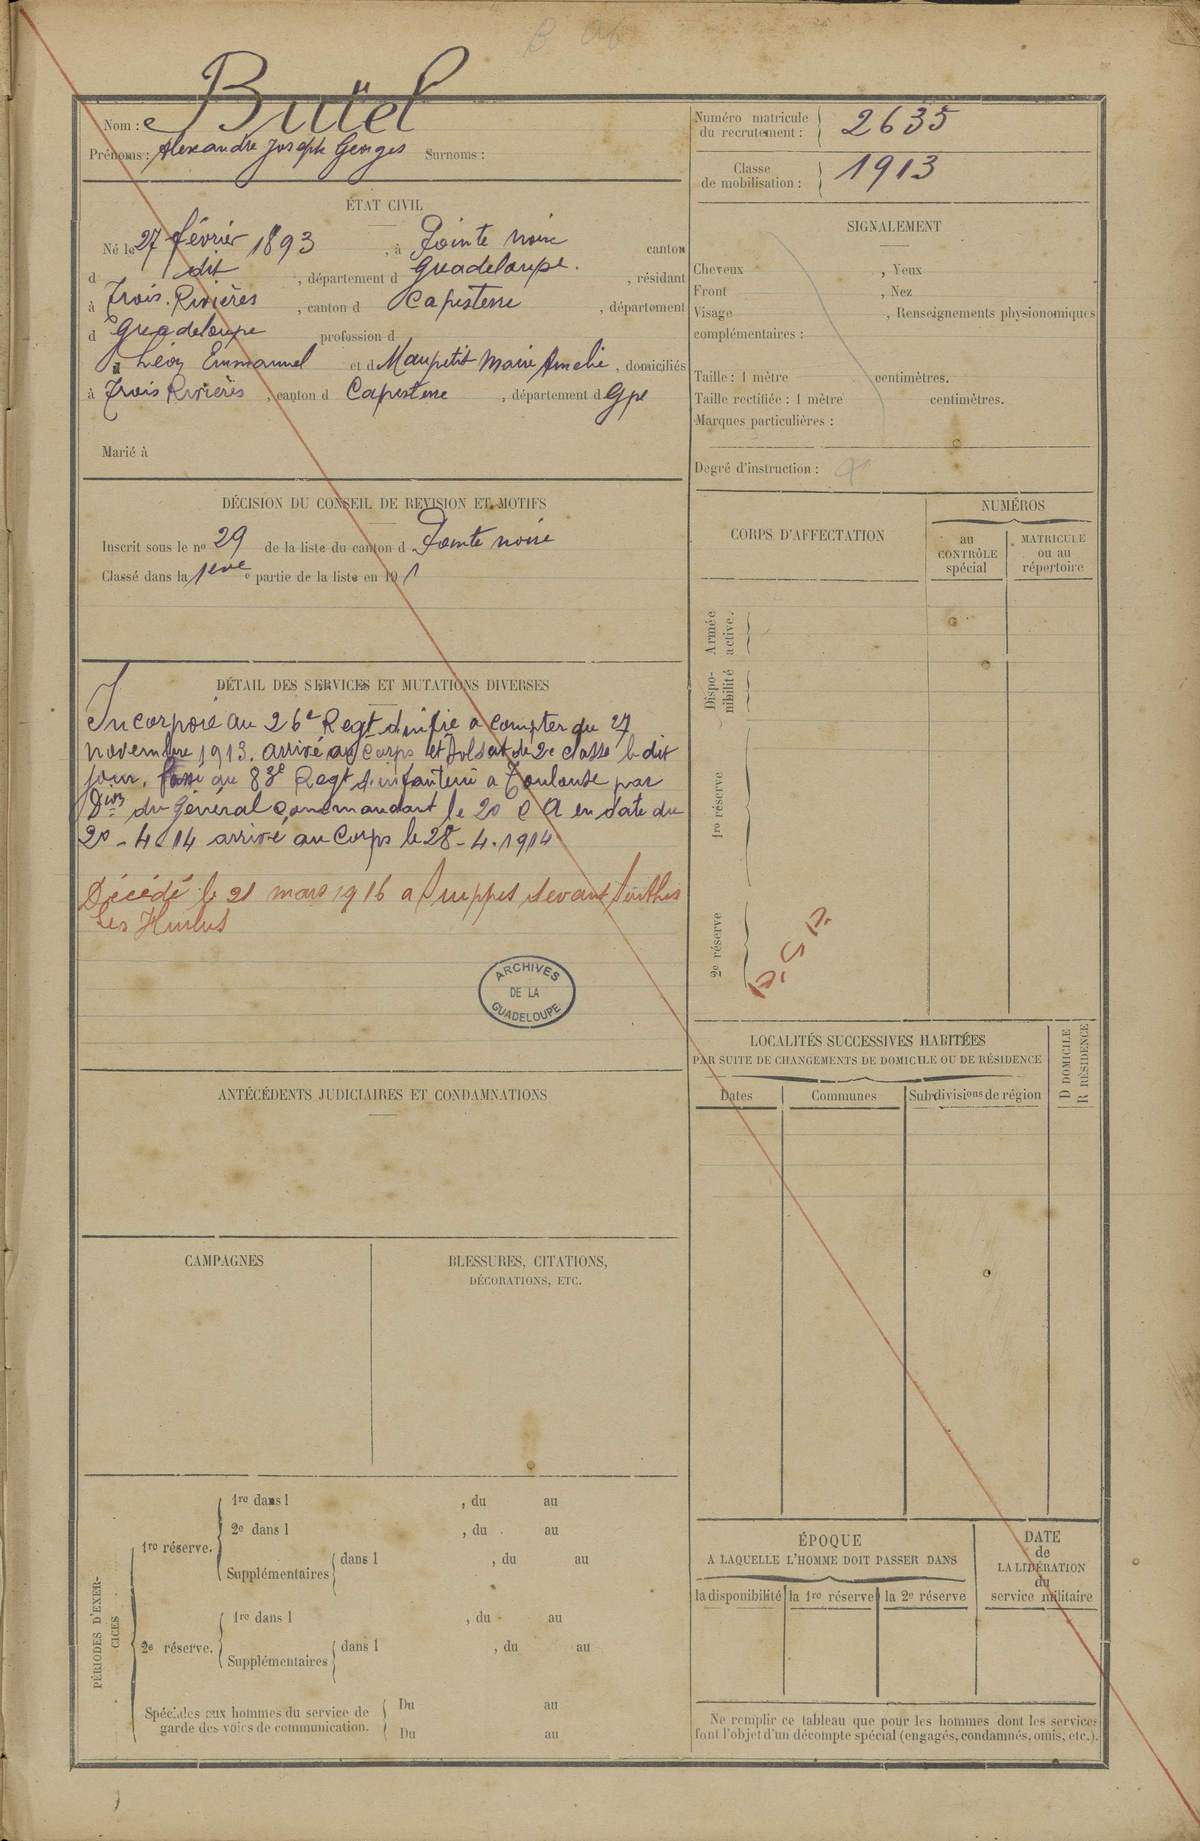 Nom : Butel
Prénoms : Alexandre Joseph Georges Surnoms :
ÉTAT CIVIL
Né le 27 février 1893, à Pointe noire canton
d dit, département d Guadeloupe., résidant
à Trois-Rivières, canton d Capesterre, département
d Guadeloupe profession d
Léon Emmanuel et d Maupetit Marie Amelie, domiciliés
à Trois Rivières, canton d Capesterre, département d Gpe
Marié à
DÉCISION DU CONSEIL DE REVISION ET MOTIFS
Inscrit sous le no 29 de la liste du canton d Pointe noire
Classé dans la 1ere e partie de la liste en 191
DÉTAIL DES SERVICES ET MUTATIONS DIVERSES
Incorporé au 26e Regt d'infie a compter du 27
novembre 1913. arrivé au corps et soldat de 2e classe le dit
jour. Passé au 83e Regt d'infanterie a Toulouse par
Don du Général Commandant le 20 C A en date du
20-4-14 arrivé au Corps le 28-4-1914
Décédé le 21 mars 1916 a Suippes devant Perthes
les Hurlus
ARCHIVES
DE LA
GUADELOUPE
ANTÉCÉDENTS JUDICIAIRES ET CONDAMNATIONS
CAMPAGNES
BLESSURES, CITATIONS,
DÉCORATIONS, ETC.
PÉRIODES D'EXER-
CICES
1re réserve.
1re dans l , du au
2e dans l , du au
Supplémentaires dans l , du au
2e réserve.
1re dans l , du au
Supplémentaires dans l , du au
Spéciales aux hommes du service de
garde des voies de communication.
Du au
Du au
Numéro matricule
du recrutement : 2635
Classe
de mobilisation : 1913
SIGNALEMENT
Cheveux , Yeux
Front , Nez
Visage , Renseignements physionomiques
complémentaires :
Taille : 1 mètre centimètres.
Taille rectifiée : 1 mètre centimètres.
Marques particulières :
Degré d'instruction :
CORPS D'AFFECTATION
NUMÉROS
au
CONTRÔLE
spécial
MATRICULE
ou au
répertoire
Armée
active.
Dispo-
nibilité
1re réserve
2e réserve
LOCALITÉS SUCCESSIVES HABITÉES
PAR SUITE DE CHANGEMENTS DE DOMICILE OU DE RÉSIDENCE
D DOMICILE
R RÉSIDENCE
Dates
Communes
Subdivisions de région
ÉPOQUE
A LAQUELLE L'HOMME DOIT PASSER DANS
la disponibilité
la 1re réserve
la 2e réserve
DATE
de
LA LIBÉRATION
du
service militaire
Ne remplir ce tableau que pour les hommes dont les services
font l'objet d'un décompte spécial (engagés, condamnés, omis, etc.).